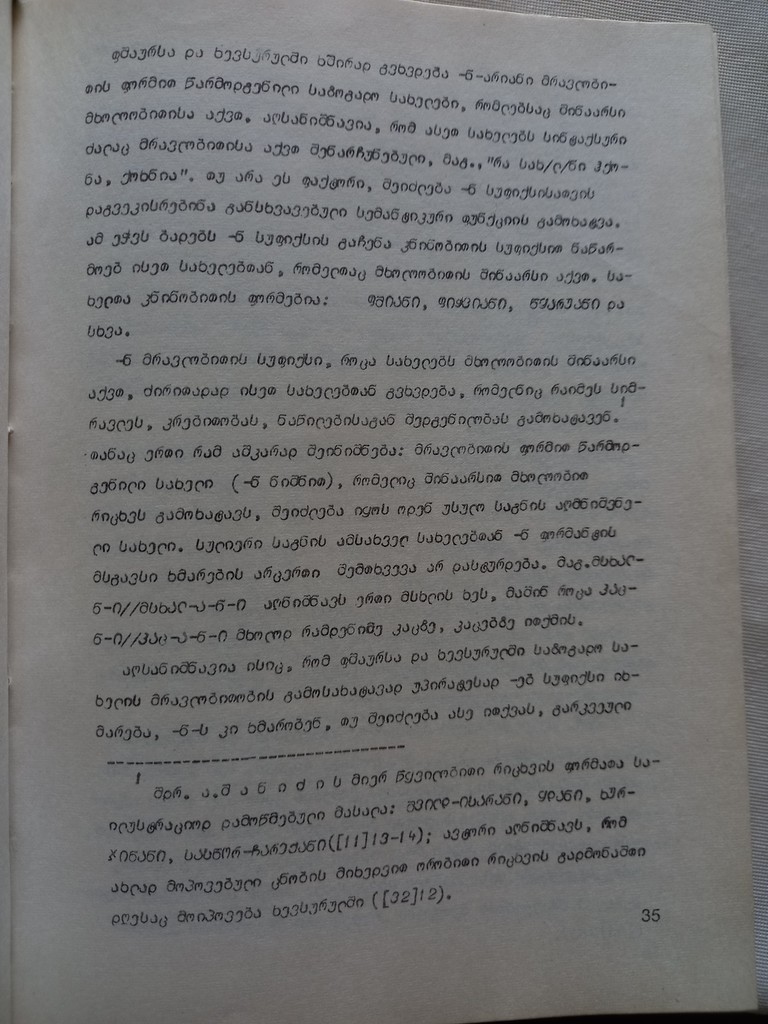 ფშაურსა და ხევსურულში ხშირად გვხვდება -ნ-არიანი მრავლობი-
თის ფორმით წარმოდგენილი საზოგადო სახელები, რომლებსაც შინაარსი
მხოლობითისა აქვთ. აღსანიშნავია, რომ ასეთ სახელებს სინტაქსური
ძალაც მრავლობითისა აქვთ შენარჩუნებული, მაგ., "რა სახ/ლ/ნი ჰქო-
ნა, ქოხნია". თუ არა ეს ფაქტორი, შეიძლება -ნ სუფიქსისათვის
დაგვეკისრებინა განსხვავებული სემანტიკური ფუნქციის გამოხატვა.
ამ ეჭვს ბადებს -ნ სუფიქსის გაჩენა კნინობითის სუფიქსით ნაწარ-
მოებ ისეთ სახელებთან, რომელთაც მხოლობითის შინაარსი აქვთ. სა-
ხელთა კნინობითის ფორმებია: ფშიანი, ფიყვიანი, წყარუანი და
სხვა.
-ნ მრავლობითის სუფიქსი, როცა სახელებს მხოლობითის შინაარსი
აქვთ, ძირითადად ისეთ სახელებთან გვხვდება, რომელნიც რაიმეს სიმ-
რავლეს, კრებითობას, ნაწილებისაგან შედგენილობას გამოხატავენ.1
თანაც ერთი რამ აშკარად შეინიშნება: მრავლობითის ფორმით წარმოდ-
გენილი სახელი (-ნ ნიშნით), რომელიც შინაარსით მხოლობით
რიცხვს გამოხატავს, შეიძლება იყოს ოდენ უსულო საგნის აღმნიშვნე-
ლი სახელი. სულიერი საგნის ამსახველ სახელებთან -ნ ფორმანტის
მსგავსი ხმარების არცერთი შემთხვევა არ დასტურდება. მაგ.მსხალ-
ნ-ი//მსხალ-ა-ნ-ი აღნიშნავს ერთი მსხლის ხეს, მაშინ როცა კაც-
ნ-ი//კაც-ა-ნ-ი მხოლოდ რამდენიმე კაცზე, კაცებზე ითქმის.
აღსანიშნავია ისიც, რომ ფშაურსა და ხევსურულში საზოგადო სა-
ხელის მრავლობითობის გამოსახატავად უპირატესად -ებ სუფიქსი იხ-
მარება, -ნ-ს კი ხმარობენ, თუ შეიძლება ასე ითქვას, გარკვეული
1 შდრ. ა.შ ა ნ ი ძ ი ს მიერ წყვილობითი რიცხვის ფორმათა სა-
ილუსტრაციოდ დამოწმებული მასალა: შვილდ-ისარანი, ყდანი, ხურ-
ჯინანი, სასწორ-ჩარექანი([11]13-14); ავტორი აღნიშნავს, რომ
ახლად მოპოვებული ცნობის მიხედვით ორობითი რიცხვის გადმონაშთი
დღესაც მოიპოვება ხევსურულში ([32]12).
35